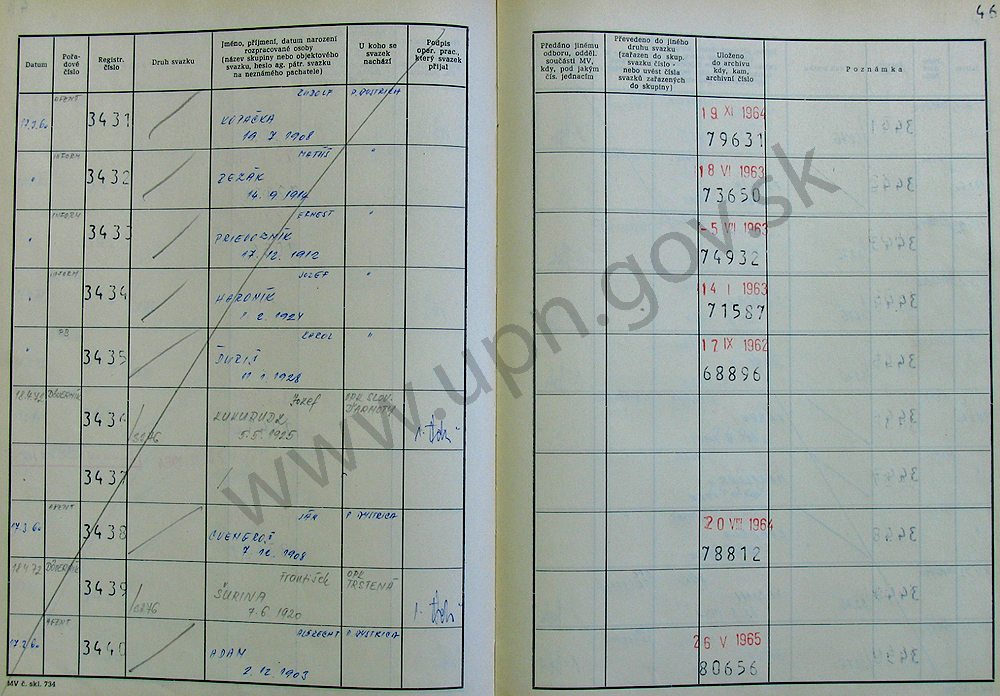 46
Datum
Pořa-
dové
číslo
Registr.
číslo
Druh svazku
Jméno, příjmení, datum narození
rozpracované osoby
(název skupiny nebo objektového
svazku, heslo ag. pátr. svazku
na neznámého pachatele)
U koho se
svazek
nachází
Podpis
oper. prac.,
který svazek
přijal
Předáno jinému
odboru, odděl.
součásti MV,
kdy, pod jakým
čís. jednacím
Převedeno do jiného
druhu svazku
(zařazen do skup.
svazku číslo -
nebo uvést čísla
svazků zařazených
do skupiny)
Uloženo
do archivu
kdy, kam,
archivní číslo
Poznámka
AGENT RUDOLF B. BYSTRICA
17.3.60 3431 19 XI 1964
19. 7. 1908 79631
INFORM MATÚŠ "
" 3432 18 VI 1963
14. 9. 1914 73650
INFORM ERNEST "
" 3433 PRIEVOZNÍK -5 VII 1963
17. 12. 1912 74932
INFORM JOZEF "
" 3434 14 I 1963
1. 2. 1924 71587
PB KAROL "
" 3435 ĎURIŠ 17 IX 1962
11. 1. 1928 68896
18.4.72 DÔVERNÍK Jozef
3436
5.5. 1925
3437
AGENT JÁN B. BYSTRICA
17.3.60 3438 20 VIII 1964
7. 12. 1908 78812
18.4.72 DÔVERNÍK František TRSTENÁ
3439 ŠURINA
7. 6 1920
AGENT ALBRECHT B. BYSTRICA
17.3.60 3440 ADAM 26 V 1965
2. 12. 1903 80656
MV č. skl. 734
www.upn.gov.sk